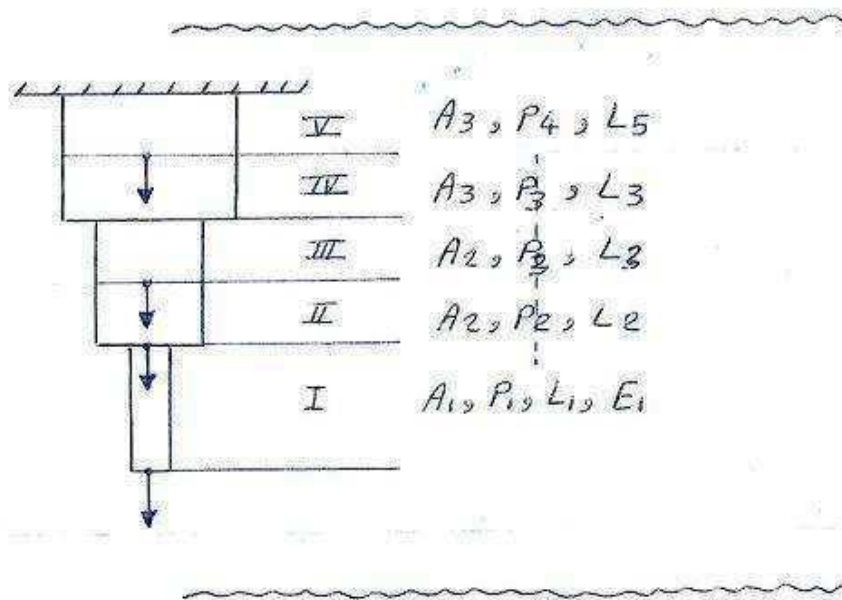 V A3, P4, L5
IV A3, P3, L3
III A2, P3, L3
II A2, P2, L2
I A1, P1, L1, E1